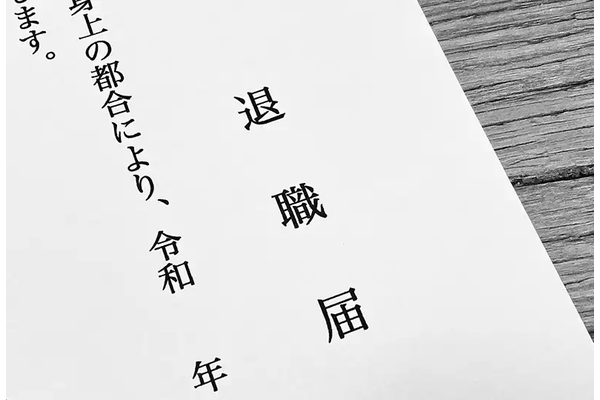 退職届
身上の都合により、令和　年
します。